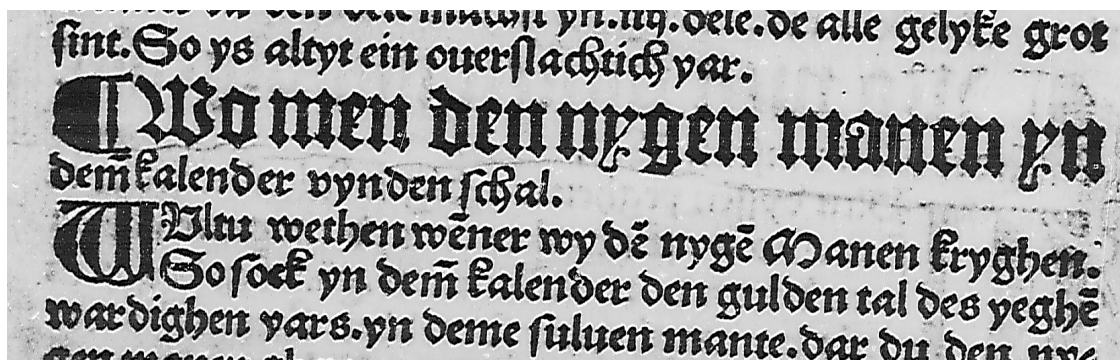 den dele machst yn.iiij.dele.de alle gelyke grot
sint.So ys altyt ein ouerslachtich yar.
¶Wo men den nygen manen yn
dem̄ kalender vynden schal.
WUltu wethen wēner wy dē nygē Manen kryghen.
So sock yn dem̄ kalender den gulden tal des yeghē
wardighen yars.yn deme suluen mante.dar du den nye
gen manen